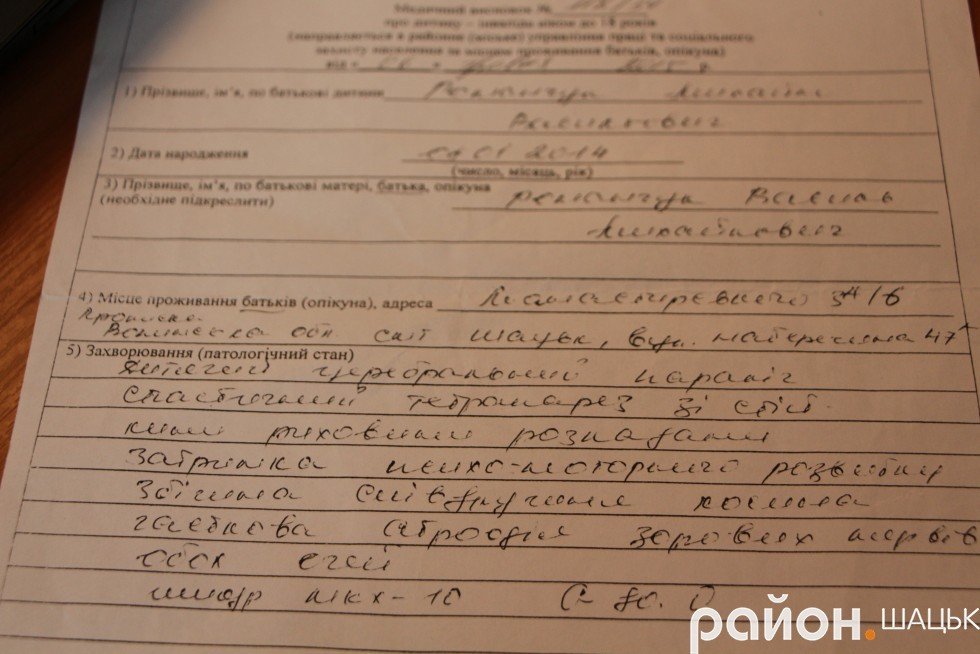 Медичний висновок №
про дитину – інваліда віком до 18 років
(направляється в районне (міське) управління праці та соціального
захисту населення за місцем проживання батьків, опікуна)
від
1) Прізвище, ім'я, по батькові дитини
2) Дата народження 2014
(число, місяць, рік)
3) Прізвище, ім'я, по батькові матері, батька, опікуна Василь
(необхідне підкреслити)
Михайлович
4) Місце проживання батьків (опікуна), адреса
прописка
Волинська обл смт Шацьк, вул. 47
5) Захворювання (патологічний стан)
Дитячий церебральний параліч
спастичний тетрапарез зі стій-
кими руховими розладами
затримка психо-моторного розвитку
збіжна співдружня косина
часткова атрофія зорових нервів
обох очей
шифр мкх-10 G 80.0
район.ШАЦЬК